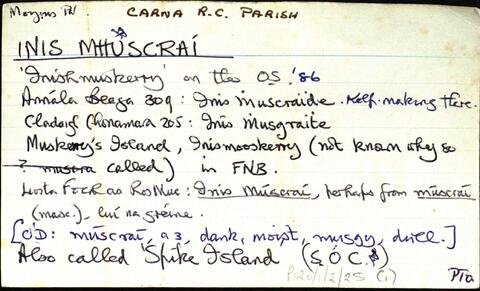 CARNA R.C. PARISH
INIS MHÚSCRAÍ
'Inishmuskerry' on the O.S. '86
Annála Beaga 309: Inis Muscraide. Kelp-making there.
Cladaigh Chonamara 205: Inis Musgraite
Muskerry's Island, Inismooskerry (not know why so
? muscra called) in FNB.
Liosta FTCR as Ros Muc: Inis Múscraí, perhaps from múscraí
(masc.), luí na gréine.
[Ó'D: múscraí, a3, dank, moist, musgy, dull.]
Also called 'Spike Island (S Ó C.)
P120/1/2/25 (1)
PTO